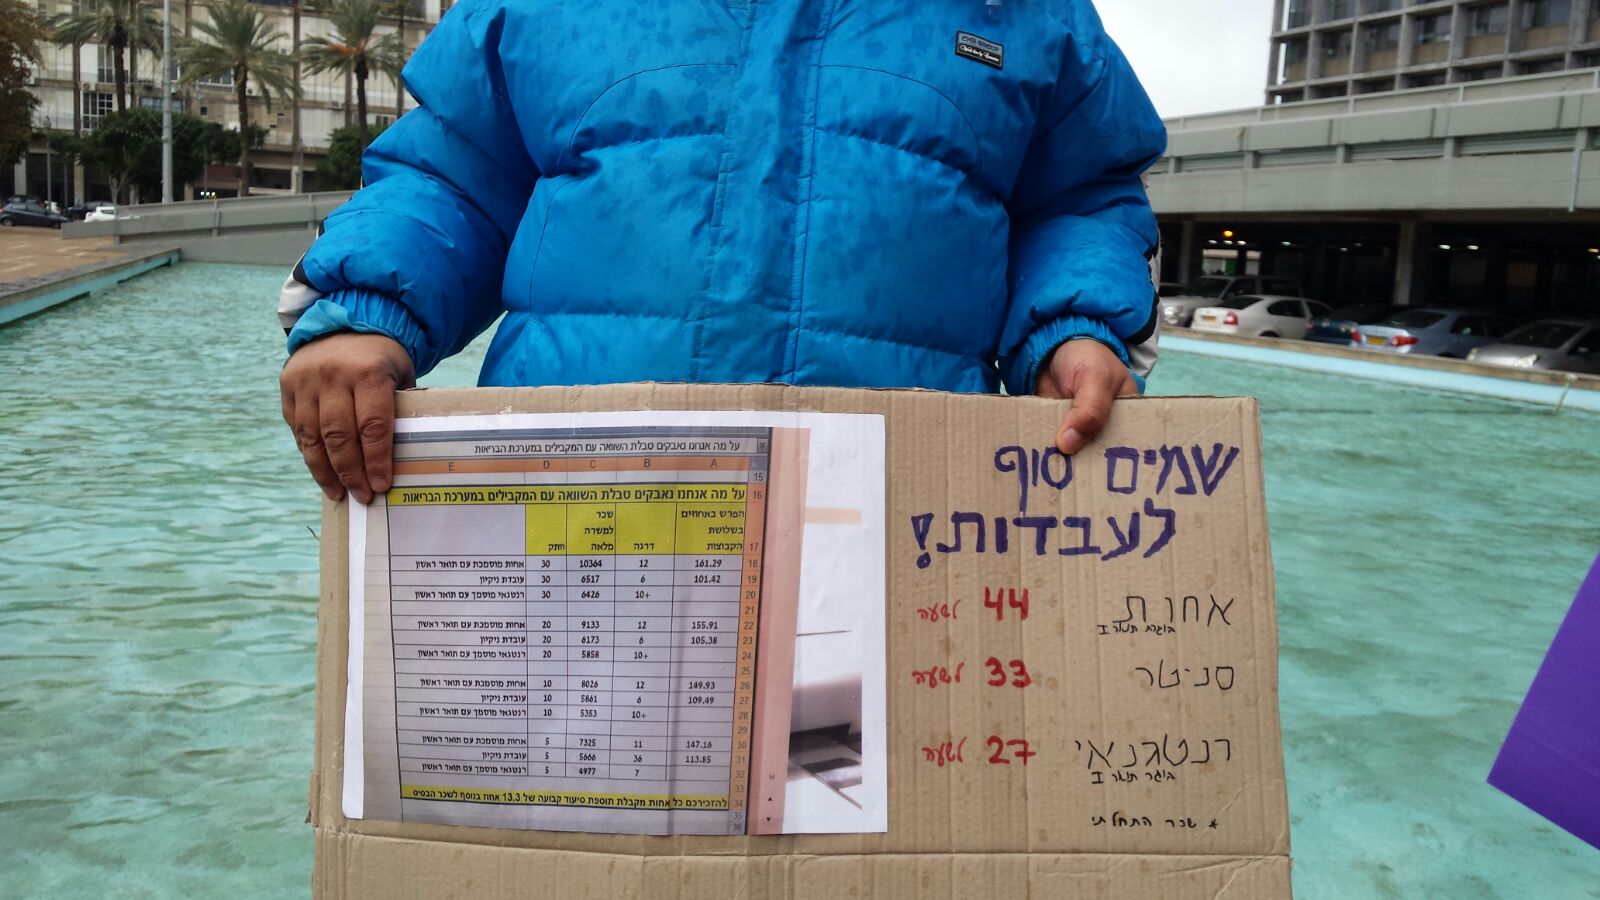 על מה אנחנו נאבקים טבלת השוואה עם המקבילים במערכת הבריאות
A B C D E
15
16 על מה אנחנו נאבקים טבלת השוואה עם המקבילים במערכת הבריאות
17 הפרש באחוזים בשלושת הקבוצות דרגה שכר למשרה מלאה וותק
18 161.29 12 10364 30 אחות מוסמכת עם תואר ראשון
19 101.42 6 6517 30 עובדת ניקיון
20 10+ 6426 30 רנטגאי מוסמך עם תואר ראשון
21
22 155.91 12 9133 20 אחות מוסמכת עם תואר ראשון
23 105.38 6 6173 20 עובדת ניקיון
24 10+ 5858 20 רנטגאי מוסמך עם תואר ראשון
25
26 149.93 12 8026 10 אחות מוסמכת עם תואר ראשון
27 109.49 6 5861 10 עובדת ניקיון
28 10+ 5353 10 רנטגאי מוסמך עם תואר ראשון
29
30 147.16 11 7325 5 אחות מוסמכת עם תואר ראשון
31 113.85 36 5666 5 עובדת ניקיון
32 7 4977 5 רנטגאי מוסמך עם תואר ראשון
33
34 להזכירכם כל אחות מקבלת תוספת סיעוד קבועה של 13.3 אחוז בנוסף לשכר הבסיס
35
36
שמים סוף
לעבדות!
אחות 44 לשעה
בוגרת תואר I
סניטר 33 לשעה
רנטגנאי 27 לשעה
בוגר תואר I
* שכר התחלתי